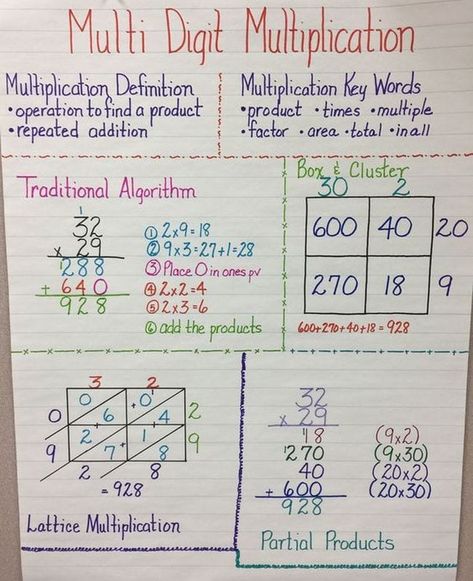 Multi Digit Multiplication
Multiplication Definition
• operation to find a product
• repeated addition
Multiplication Key Words
• product • times • multiple
• factor • area • total • in all
Traditional Algorithm
1
32
x 29
1288
+ 640
928
① 2x9=18
② 9x3=27+1=28
③ Place 0 in ones pv
④ 2x2=4
⑤ 2x3=6
⑥ add the products
Box & Cluster
30 2
600 40 20
270 18 9
600+270+40+18=928
3 2
0 0
0 6 4 2
2 1
9 7 8 9
2 8
= 928
Lattice Multiplication
32
x 29
18 (9x2)
1270 (9x30)
40 (20x2)
+ 600 (20x30)
928
Partial Products